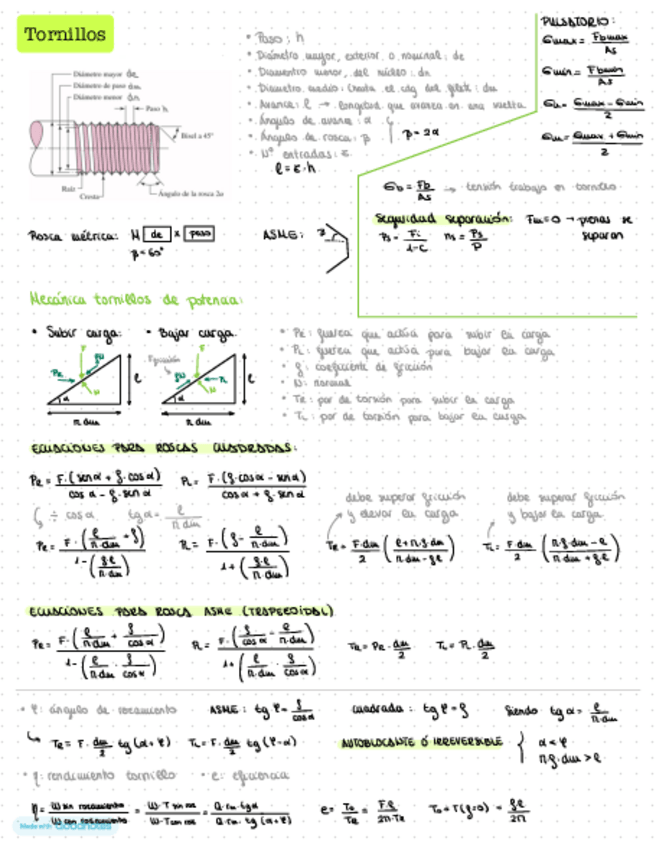 Tornillos
Diámetro mayor de
Diámetro de paso dm
Diámetro menor dn
Paso h
Bisel a 45°
Raíz
Cresta
Ángulo de la rosca 2α
• Paso: h
• Diámetro mayor, exterior o nominal: de
• Diámetro menor, del núcleo: dn
• Diámetro medio: Cresta el cdg del filete: dm
• Avance: l → longitud que avanza en una vuelta
• Ángulo de avance: α
• Ángulo de rosca: β
β = 2α
• Nº entradas: ε
l = ε·h
PULSATORIO:
σmax = Fbmax / As
σmin = Fbmin / As
σa = (σmax - σmin) / 2
σm = (σmax + σmin) / 2
σb = Fb / As → tensión trabajo en tornillo
Seguridad separación: Fm=0 → piezas se separan
Ps = Fi / (1-C) ns = Ps / P
Rosca métrica: M de x paso
β = 60°
ASME: β
Mecánica tornillos de potencia:
• Subir carga: • Bajar carga:
F fN PR N α l π dm
Fricción F fN PL N α l π dm
• PR: fuerza que actúa para subir la carga
• PL: fuerza que actúa para bajar la carga
• f: coeficiente de fricción
• N: normal
• TR: par de torsión para subir la carga
• TL: par de torsión para bajar la carga
ECUACIONES PARA ROSCAS CUADRADAS:
PR = F·(sen α + f·cos α) / (cos α - f·sen α) PL = F·(f·cos α - sen α) / (cos α + f·sen α)
÷ cos α tg α = l / (π dm)
debe superar fricción y elevar la carga
debe superar fricción y bajar la carga
PR = F·(l/(π·dm) + f) / (1 - (f·l/(π·dm))) PL = F·(f - l/(π·dm)) / (1 + (f·l/(π·dm))) TR = F·dm/2 ((l + π·f·dm)/(π·dm - f·l)) TL = F·dm/2 ((π·f·dm - l)/(π·dm + f·l))
ECUACIONES PARA ROSCA ASME (TRAPEZOIDAL)
PR = F·(l/(π·dm) + f/cos α) / (1 - (l/(π·dm) · f/cos α)) PL = F·(f/cos α - l/(π·dm)) / (1 + (l/(π·dm) · f/cos α)) TR = PR · dm/2 TL = PL · dm/2
• φ: ángulo de rozamiento ASME: tg φ = f/cos α cuadrada: tg φ = f siendo tg α = l/(π·dm)
↳ TR = F · dm/2 tg(α+φ) TL = F · dm/2 tg(φ-α) AUTOBLOCANTE O IRREVERSIBLE { α < φ
π·f·dm > l
• η: rendimiento tornillo • e: eficiencia
η = W sin rozamiento / W con rozamiento = W·T sin roz / W·T con roz = Q·rm·tg α / Q·rm·tg(α+φ) e = T0/TR = F·l/(2π·TR) T0 = T(f=0) = Fl/2π
Made with Goodnotes